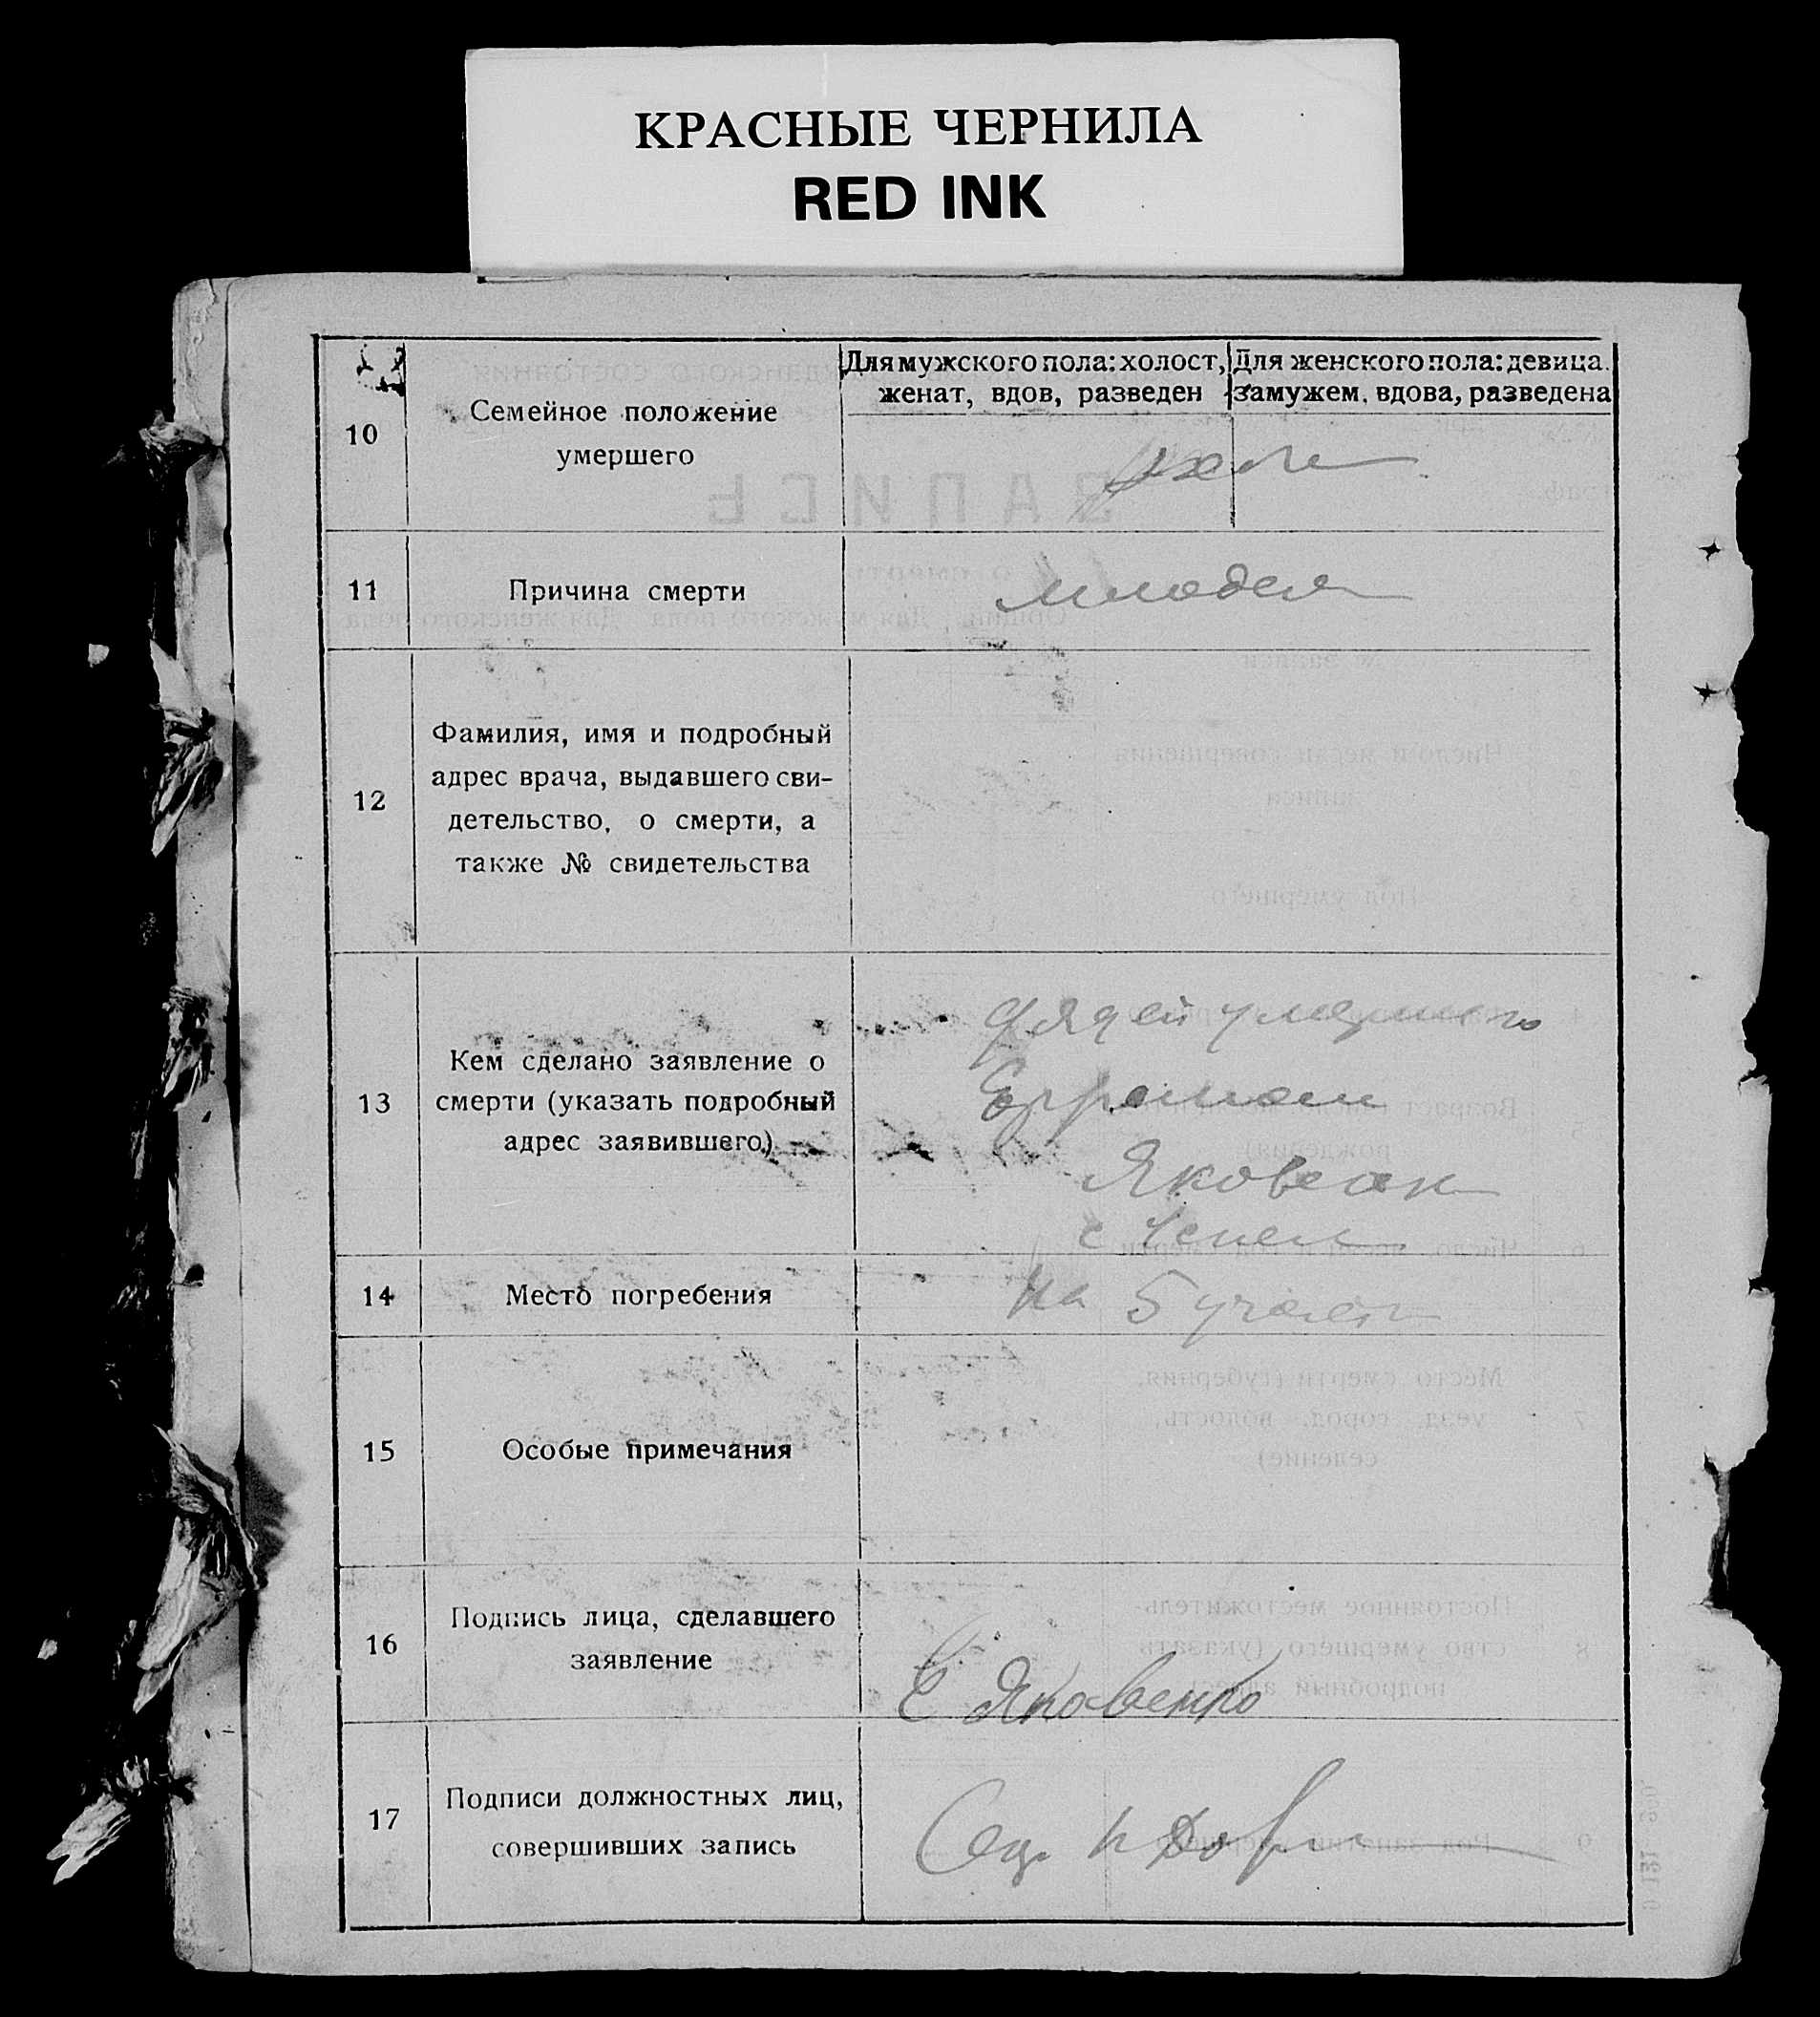 КРАСНЫЕ ЧЕРНИЛА
RED INK
10
Семейное положение
умершего
Для мужского пола: холост,
женат, вдов, разведен
Для женского пола: девица.
замужем, вдова, разведена
11
Причина смерти
12
Фамилия, имя и подробный
адрес врача, выдавшего сви-
детельство, о смерти, а
также № свидетельства
13
Кем сделано заявление о
смерти (указать подробный
адрес заявившего)
дядей умершего
14
Место погребения
На 5
15
Особые примечания
16
Подпись лица, сделавшего
заявление
Е Яковенко
17
Подписи должностных лиц,
совершивших запись